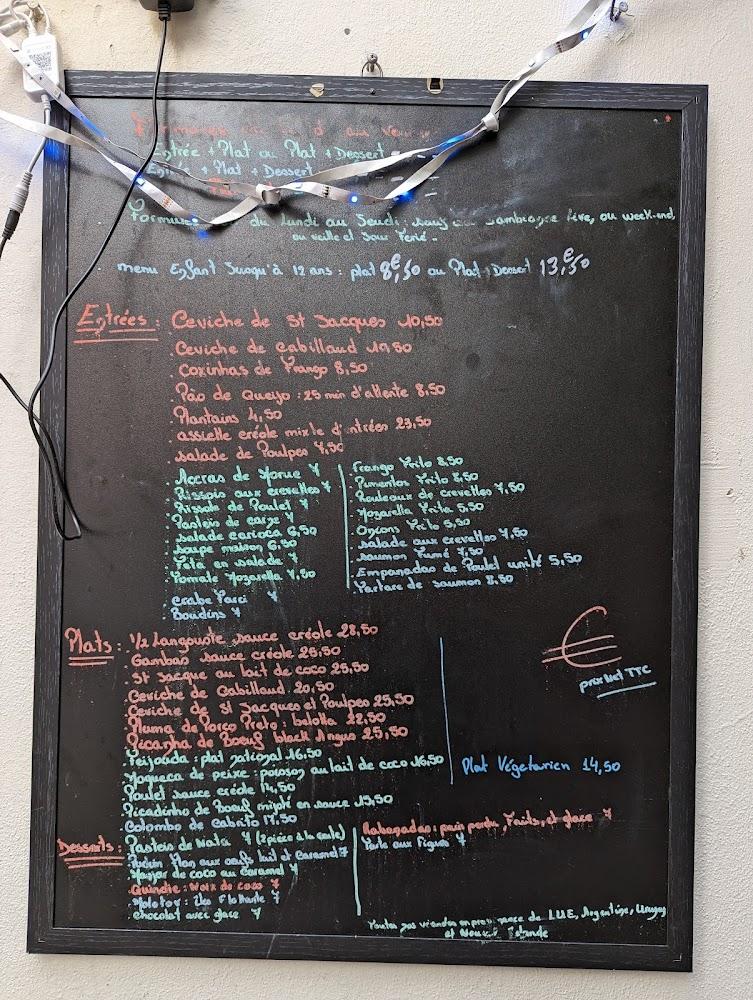 Entrée + Plat ou Plat + Dessert
Entrée + Plat + Dessert
du Lundi au Jeudi : sauf ou week-end,
ou veille et Jour Ferié.
menu Enfant Jusqu'à 12 ans : plat 8€,50 ou Plat + Dessert 13€,50
Entrées : Ceviche de St Jacques 10,50
. Ceviche de Cabillaud 10,50
. Coxinhas de Frango 8,50
. Pão de Queijo : 25 min d'attente 8,50
. Plantains 4,50
. assiette créole mixte d'entrées 23,50
. salade de Poulpes 7,50
. Accras de Morue 7
. Rissois aux crevettes 7
. Rissole de Poulet 7
. Pasteis de carne 7
. salade carioca 6,50
. soupe maison 6,50
. Feta en salade 7
. Tomate Mozarella 7,50
. Crabe Farci 7
. Boudins 7
. Frango Frito 8,50
. Pimentos Frito 6,50
. Rouleaux de crevettes 7,50
. Mozarella Frite 5,50
. Onions Frito 5,50
. salade aux crevettes 7,50
. saumon Fumé 7,50
. Empanadas de Poulet unité 5,50
. Tartare de saumon 8,50
Plats : 1/2 Langouste sauce créole 28,50
. Gambas sauce créole 25,50
. St Jacque au lait de coco 25,50
. Ceviche de Cabillaud 20,50
. Ceviche de St Jacques et Poulpes 25,50
. Pluma de Porco Preto : bellota 22,50
. Picanha de Boeuf black Angus 25,50
. Feijoada : plat national 16,50
. Moqueca de peixe : poisson au lait de coco 16,50
. Poulet sauce créole 14,50
. Picadinho de Boeuf mijoté en sauce 15,50
. Colombo de Cabrito 17,50
€
prix Net TTC
Plat Végétarien 14,50
Desserts : . Pasteis de Nata 7 (2 pièces à la carte)
. Pudim Flan aux oeufs lait et Caramel 7
. Manjar de coco au Caramel 7
. Quindim : Noix de coco 7
. Molotov : Ile Flottante 7
. chocolat avec glace 7
. Rabanadas : pain perdu, Fruits, et glace 7
. Tarte aux Figues 7
Toutes nos viandes en provenance de L'UE, Argentine, Uruguay
et Nouvelle Zelande